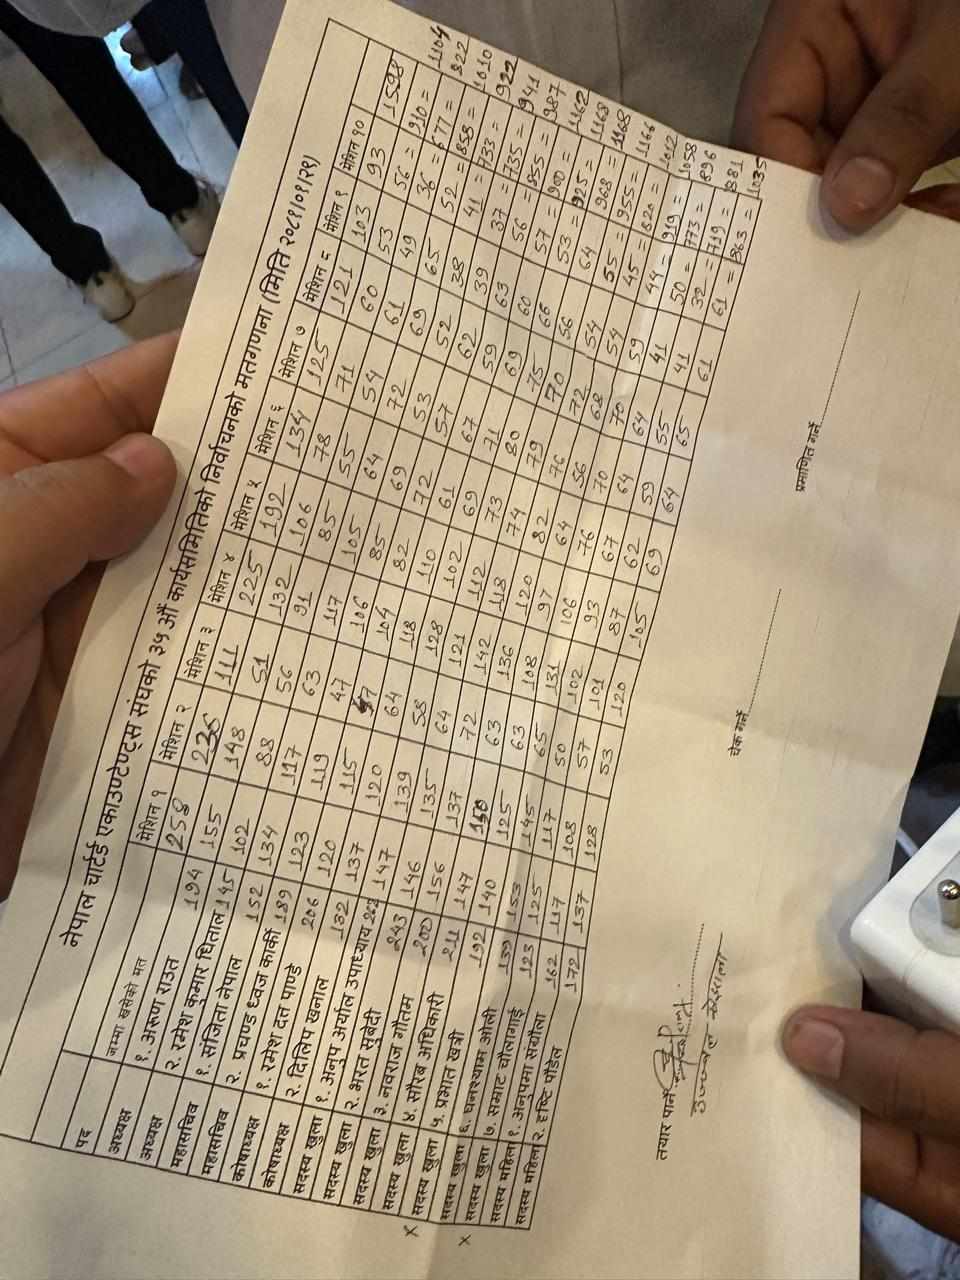 नेपाल चार्टर्ड एकाउण्टेण्ट्स संघको ३५ औं कार्यसमितिको निर्वाचनको मतगणना (मिति २०८१।०१।२१)
पद मेशिन १ मेशिन २ मेशिन ३ मेशिन ४ मेशिन ५ मेशिन ६ मेशिन ७ मेशिन ८ मेशिन ९ मेशिन १०
जम्मा खसेको मत 258 236 111 225 192 134 125 121 103 93 1598
अध्यक्ष १. अरुण राउत 194 155 148 51 132 106 78 71 60 53 56 = 910 = 1104
अध्यक्ष २. रमेश कुमार धिताल 145 102 88 56 91 85 55 54 61 49 36 = 677 = 822
महासचिव १. संजिता नेपाल 152 134 117 63 117 105 64 72 69 65 52 = 858 = 1010
महासचिव २. प्रचण्ड ध्वज कार्की 189 123 119 47 106 85 69 53 52 38 41 = 733 = 922
कोषाध्यक्ष १. रमेश दत्त पाण्डे 206 120 115 47 104 82 72 57 62 39 37 = 735 = 941
कोषाध्यक्ष २. दिलिप खनाल 132 137 120 64 118 110 61 67 59 63 56 = 855 = 987
सदस्य खुला १. अनुप अर्याल उपाध्याय 262 147 139 58 128 102 69 71 69 60 57 = 900 = 1162
सदस्य खुला २. भरत सुवेदी 243 146 135 64 121 112 73 80 75 66 53 = 925 = 1168
सदस्य खुला ३. नवराज गौतम 200 156 137 72 142 118 74 79 70 56 64 = 968 = 1168
x सदस्य खुला ४. सौरब अधिकारी 211 147 150 63 136 120 82 76 72 54 55 = 955 = 1166
सदस्य खुला ५. प्रभात खत्री 192 140 125 63 108 97 64 56 68 54 45 = 820 = 1012
x सदस्य खुला ६. घनश्याम ओली 139 153 145 65 131 106 76 70 70 59 44 = 919 = 1058
सदस्य खुला ७. सम्राट चौलागाई 123 125 117 50 102 93 67 64 64 41 50 = 773 = 896
सदस्य महिला १. अनुपमा सग्रौला 162 117 108 57 101 87 62 59 55 41 32 = 719 = 881
सदस्य महिला २. दृष्टि पौडेल 172 137 128 53 120 105 69 64 65 61 61 = 863 = 1035
तयार पार्ने चेक गर्ने प्रमाणित गर्ने